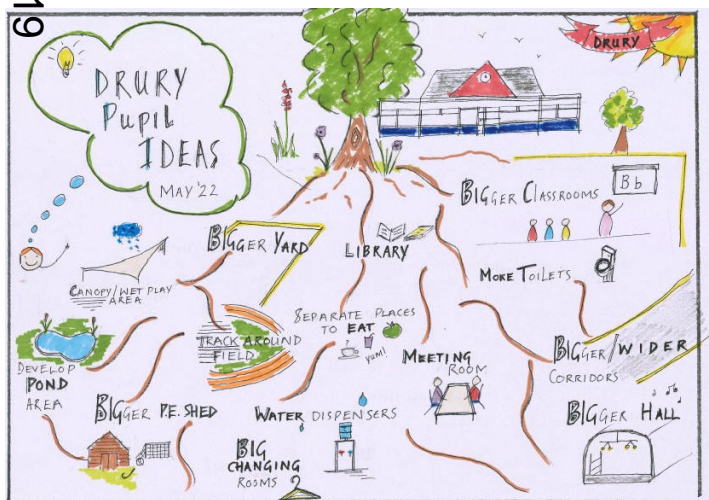 19
DRURY
PUPIL
IDEAS
MAY '22
DRURY
BIGGER CLASSROOMS
Bb
BIGGER YARD
LIBRARY
MORE TOILETS
CANOPY/WET PLAY
AREA
SEPARATE PLACES
TO EAT
yum!
TRACK AROUND
FIELD
MEETING
ROOM
BIGGER/WIDER
CORRIDORS
DEVELOP
POND
AREA
BIGGER P.E. SHED
WATER DISPENSERS
BIGGER HALL
BIG
CHANGING
ROOMS